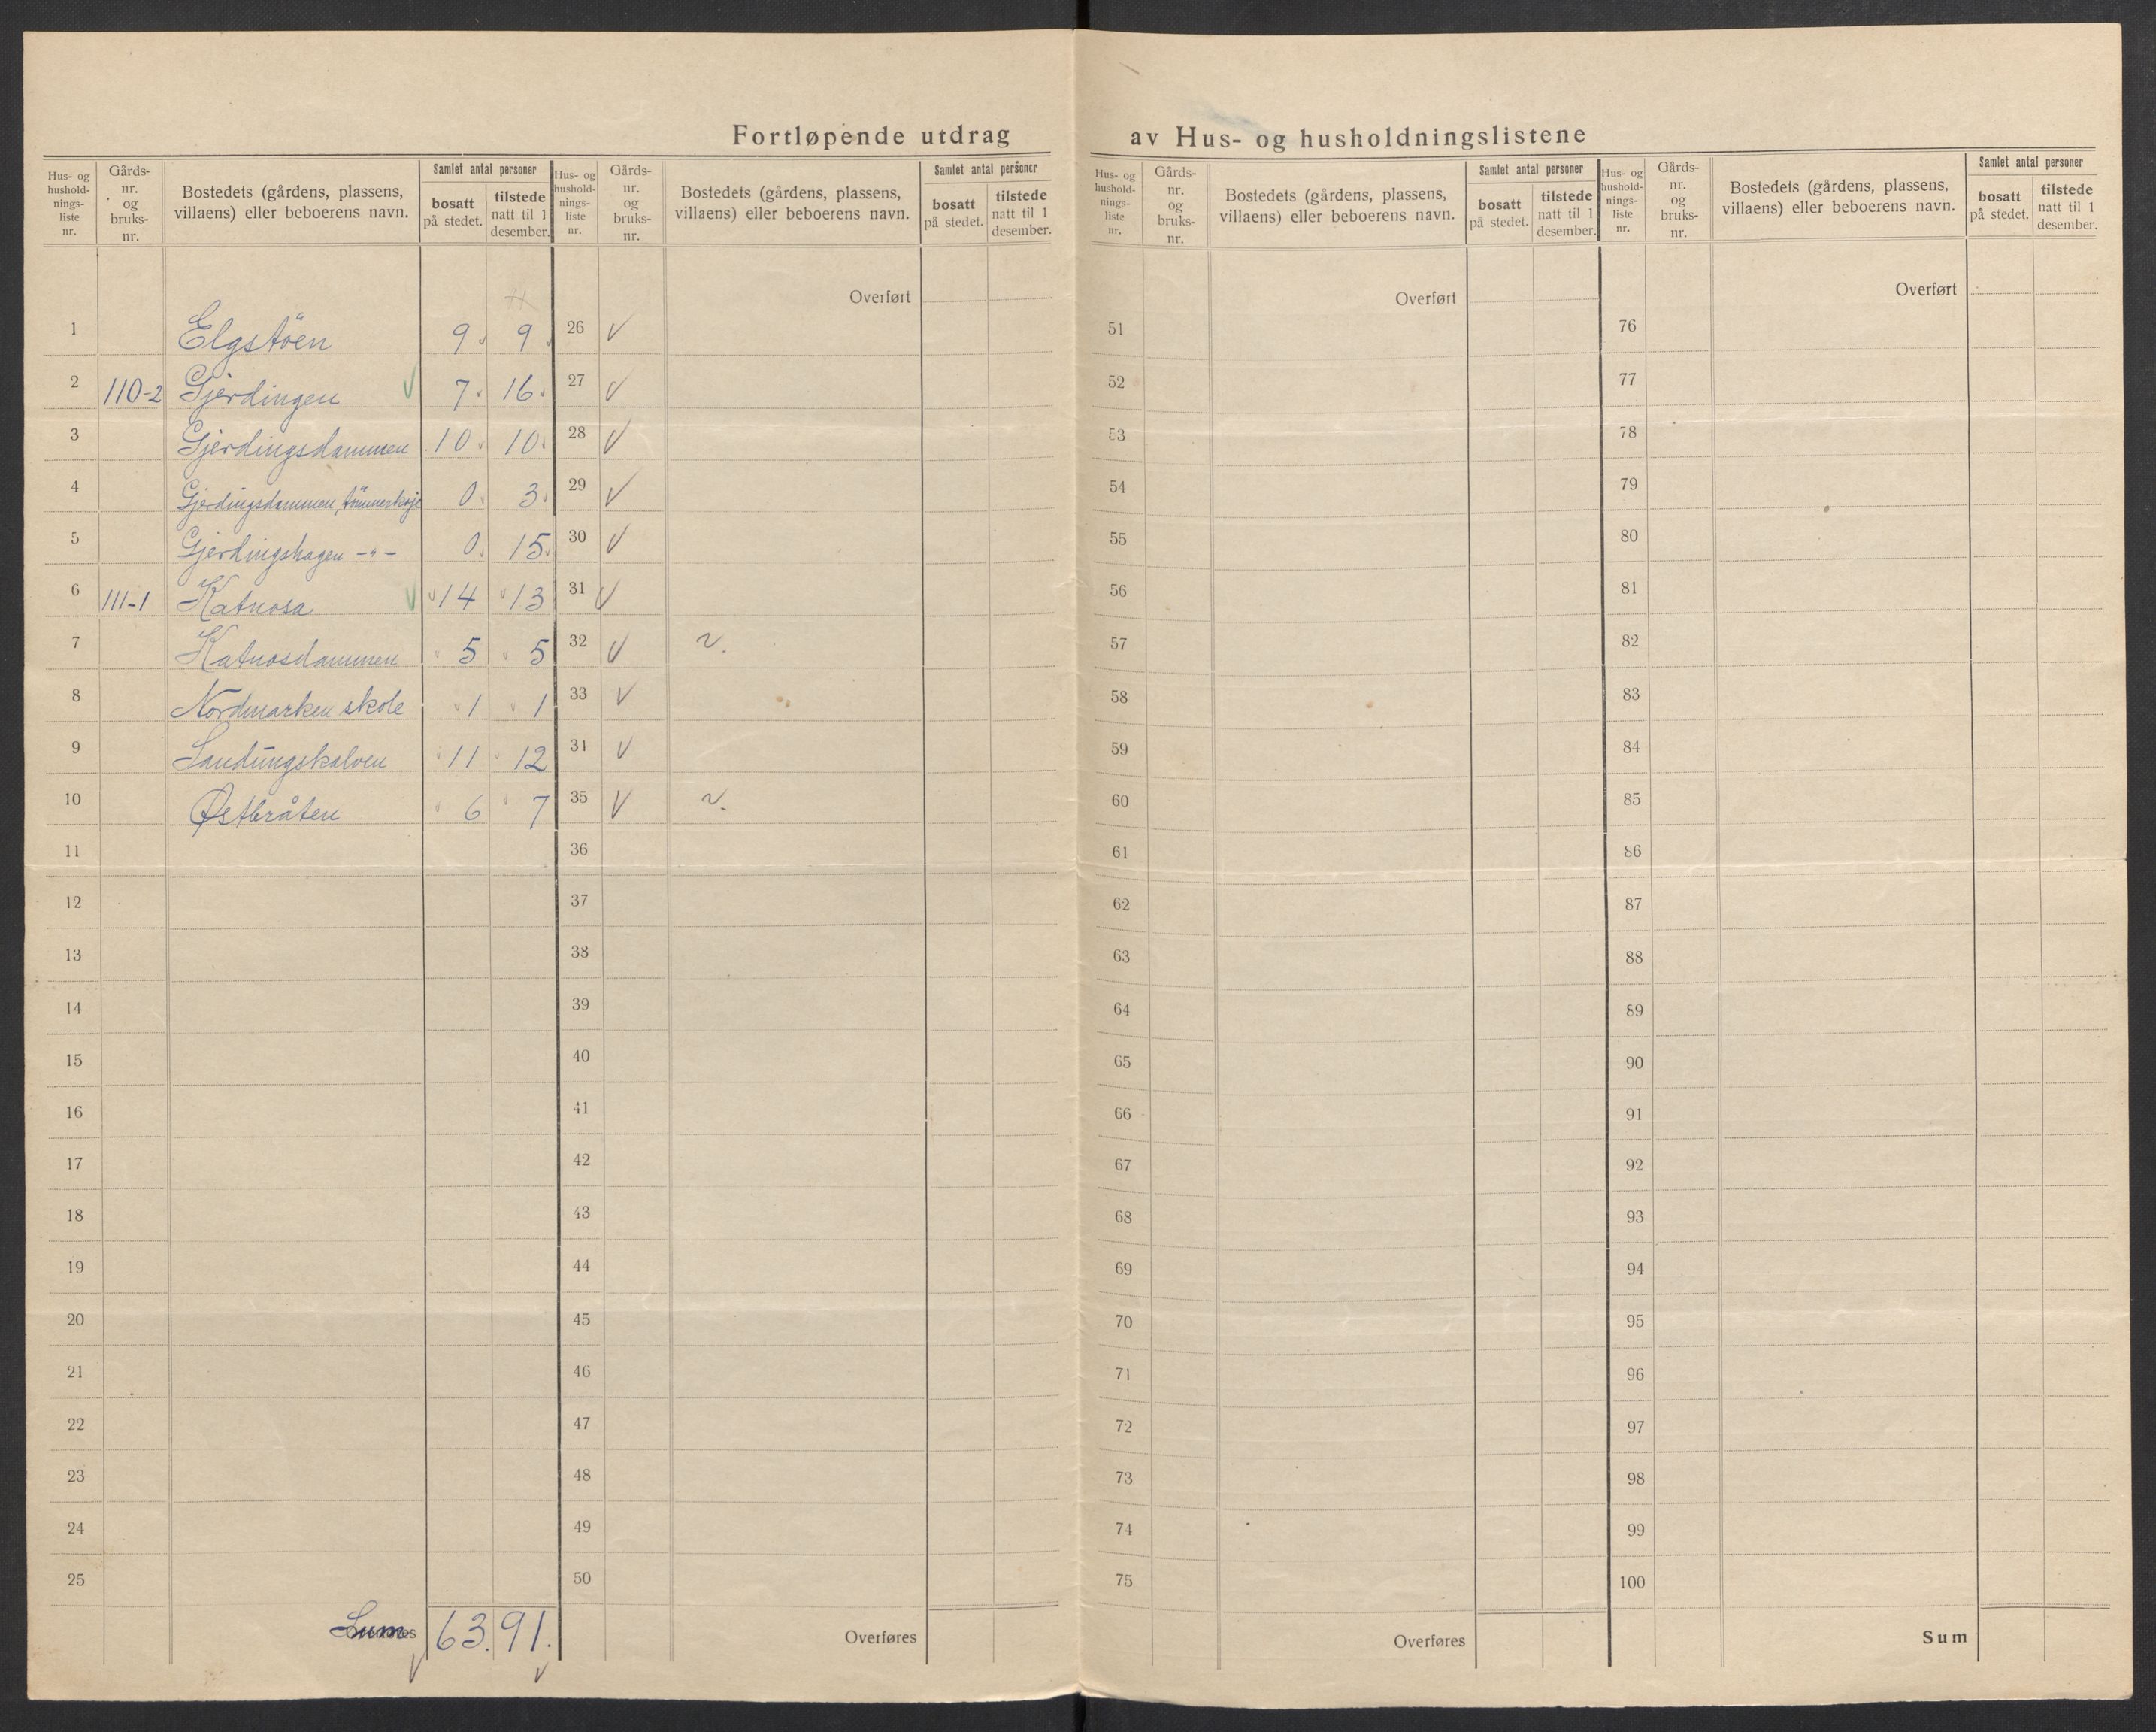 Fortløpende utdrag av Hus- og husholdningslistene
Hus- og hushold- nings- liste nr. | Gårds- nr. og bruks- nr. | Bostedets (gårdens, plassens, villaens) eller beboerens navn. | Samlet antal personer | bosatt på stedet. | tilstede natt til 1 desember.
Hus- og hushold- nings- liste nr. | Gårds- nr. og bruks- nr. | Bostedets (gårdens, plassens, villaens) eller beboerens navn. | Samlet antal personer | bosatt på stedet. | tilstede natt til 1 desember.
Hus- og hushold- nings- liste nr. | Gårds- nr. og bruks- nr. | Bostedets (gårdens, plassens, villaens) eller beboerens navn. | Samlet antal personer | bosatt på stedet. | tilstede natt til 1 desember.
Hus- og hushold- nings- liste nr. | Gårds- nr. og bruks- nr. | Bostedets (gårdens, plassens, villaens) eller beboerens navn. | Samlet antal personer | bosatt på stedet. | tilstede natt til 1 desember.
Overført Overført Overført
1 Elgstöen 9 9 26 V 51 76
2 110-2 Gjerdingen V 7 16 27 V 52 77
3 Gjerdingsdammen 10 10 28 V 53 78
4 Gjerdingsdammen, tömmerkoje 0 3 29 V 54 79
5 Gjerdingshagen -"- 0 15 30 V 55 80
6 111-1 Katnosa V 14 13 31 V 56 81
7 Katnosdammen 5 5 32 V 57 82
8 Nordmarken skole 1 1 33 V 58 83
9 Sandungskalven 11 12 34 V 59 84
10 Østbråten 6 7 35 V 60 85
11 36 61 86
12 37 62 87
13 38 63 88
14 39 64 89
15 40 65 90
16 41 66 91
17 42 67 92
18 43 68 93
19 44 69 94
20 45 70 95
21 46 71 96
22 47 72 97
23 48 73 98
24 49 74 99
25 50 75 100
Sum 63. 91. Overføres Overføres Sum